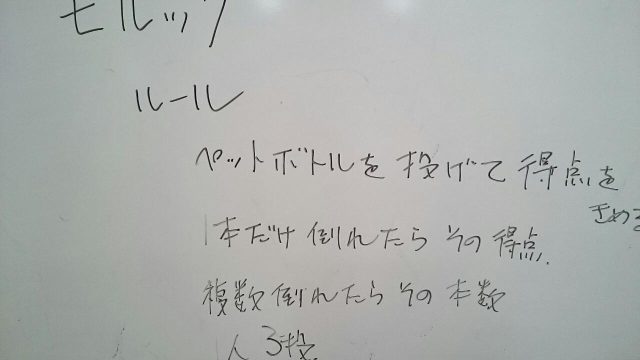 モルック
ルール
ペットボトルを投げて得点を
きめる
1本だけ倒れたらその得点.
複数倒れたらその本数
1人3投